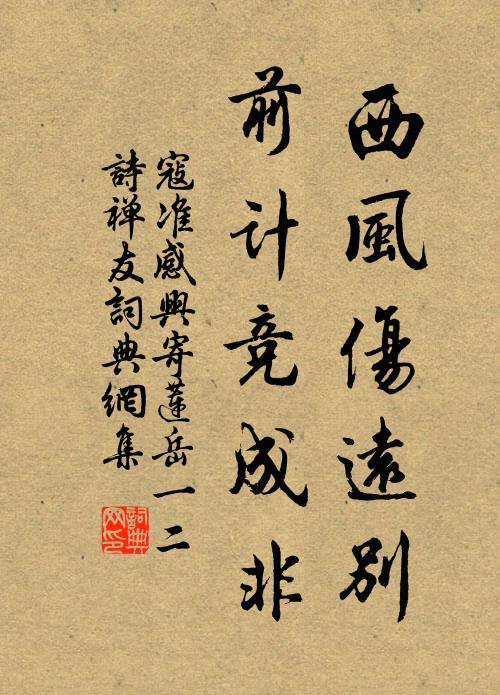 西風傷遠別
前计竞成非
寇准感興寄蓮岳一二
詩禅友詞典網集
詞典网印